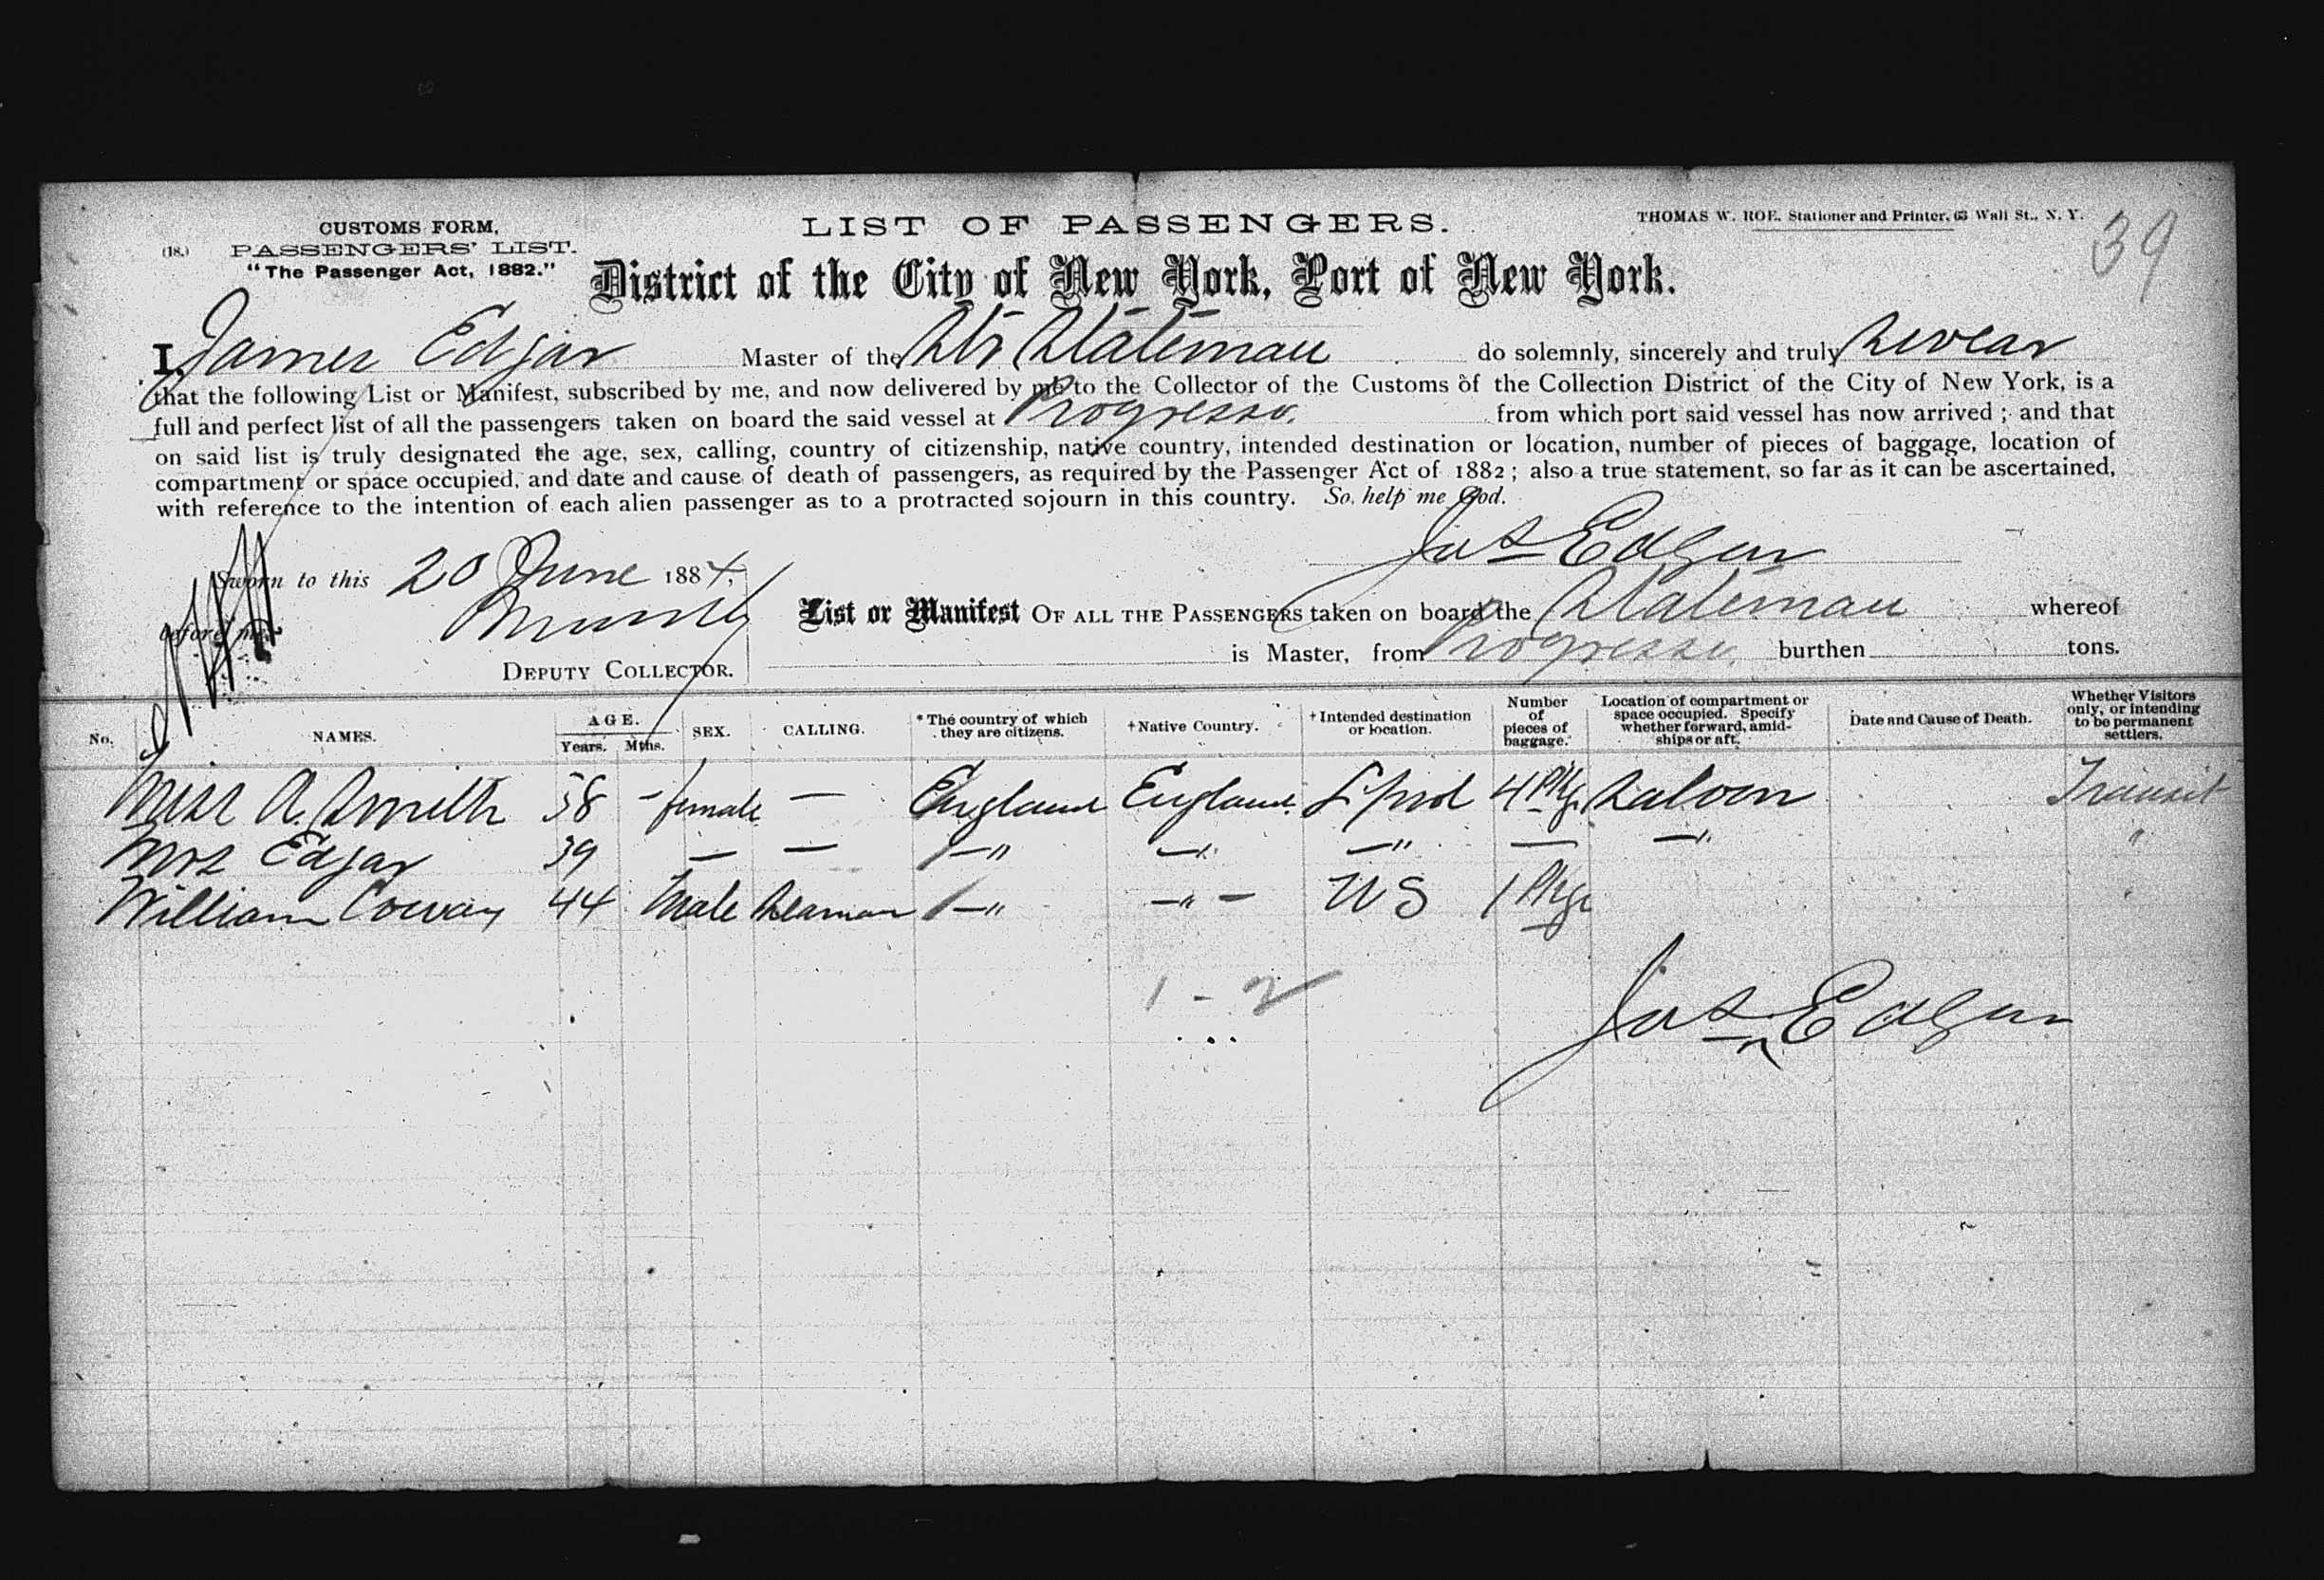 CUSTOMS FORM,
(18.) PASSENGERS' LIST.
"The Passenger Act, 1882."
LIST OF PASSENGERS.
THOMAS W. ROE. Stationer and Printer, 63 Wall St., N. Y.
39
District of the City of New York, Port of New York.
I, James Edgar Master of the Str Stateman do solemnly, sincerely and truly swear
that the following List or Manifest, subscribed by me, and now delivered by me to the Collector of the Customs of the Collection District of the City of New York, is a
full and perfect list of all the passengers taken on board the said vessel at Progresso. from which port said vessel has now arrived; and that
on said list is truly designated the age, sex, calling, country of citizenship, native country, intended destination or location, number of pieces of baggage, location of
compartment or space occupied, and date and cause of death of passengers, as required by the Passenger Act of 1882; also a true statement, so far as it can be ascertained,
with reference to the intention of each alien passenger as to a protracted sojourn in this country. So help me God.
Jas Edgar
Sworn to this 20 June 1884,
before me
DEPUTY COLLECTOR.
List or Manifest OF ALL THE PASSENGERS taken on board the Stateman whereof
is Master, from Progresso. burthen tons.
No. NAMES. AGE. Years. Mths. SEX. CALLING. * The country of which they are citizens. † Native Country. † Intended destination or location. Number of pieces of baggage. Location of compartment or space occupied. Specify whether forward, amidships or aft. Date and Cause of Death. Whether Visitors only, or intending to be permanent settlers.
Miss A. Smith 38 - female — England England L'pool 4 Pkgs Saloon Transit
Mrs Edgar 39 — — —" —" —" — —" "
William Conway 44 Male Seaman —" —"— US 1 Pkge "
1 - 2
Jas Edgar